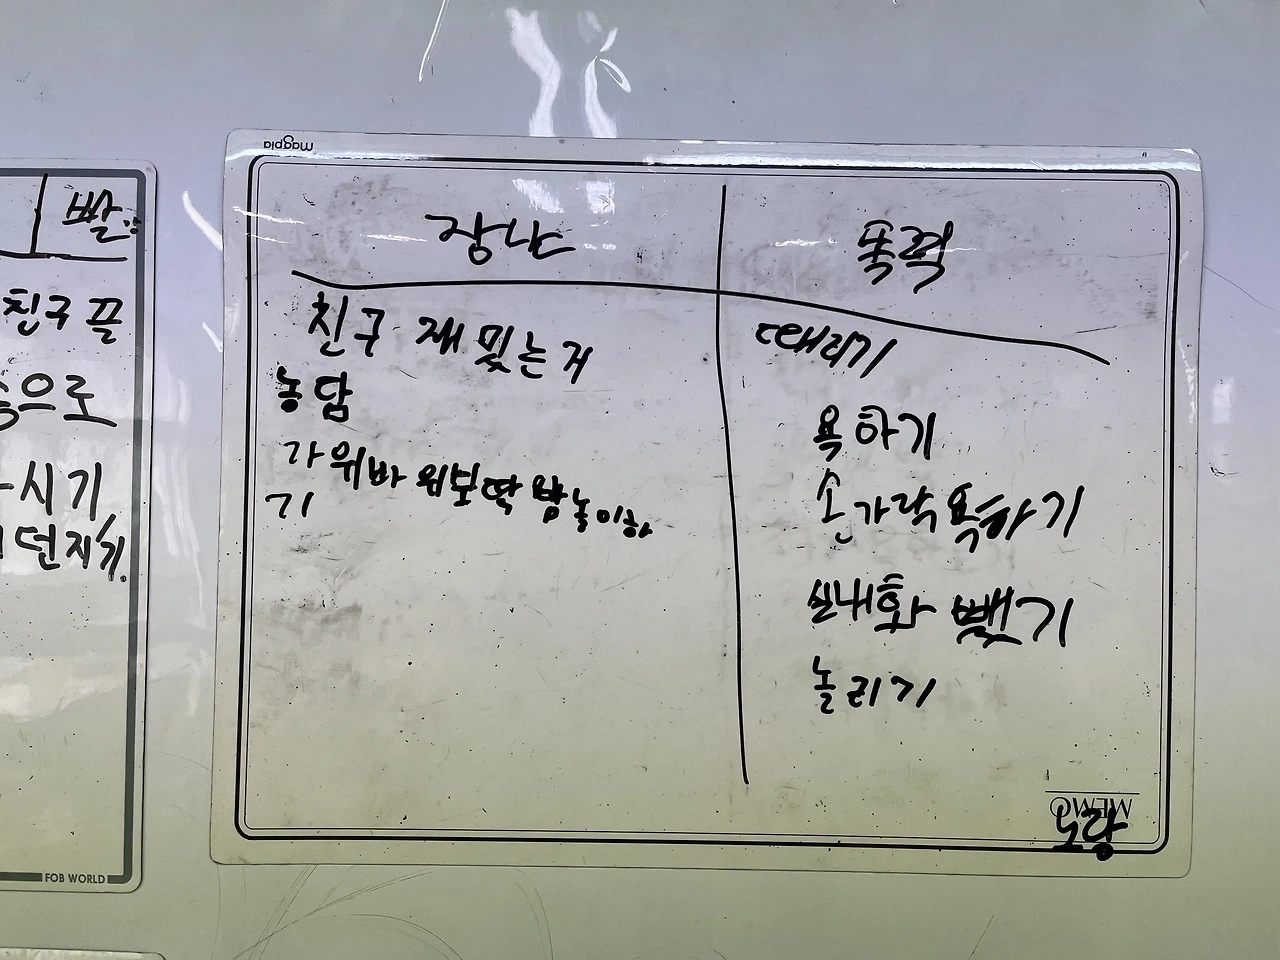 magpia
장난
폭력
친구 재밌는거
농담
가위바위보딱밤놀이하
기
때리기
욕하기
손가락욕하기
실내화 뺏기
놀리기
MEMO
노랑
빨강
친구 끌
으로
시기
던지기.
FOB WORLD